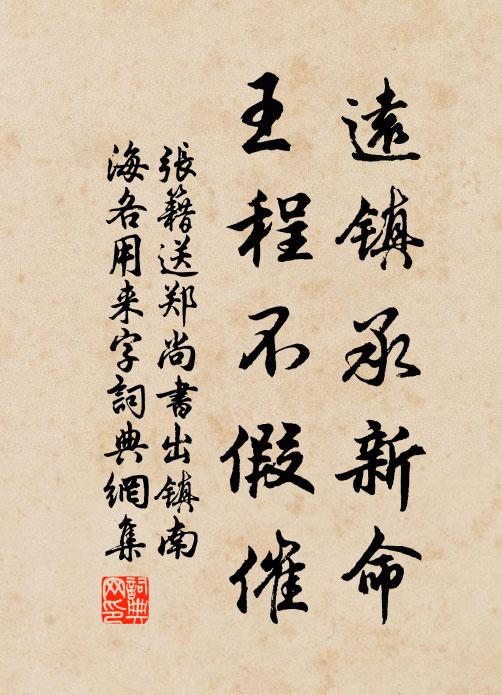 遠镇承新命
王程不假催
張籍送郑尚書出镇南
海各用来字詞典網集
詞典
网印